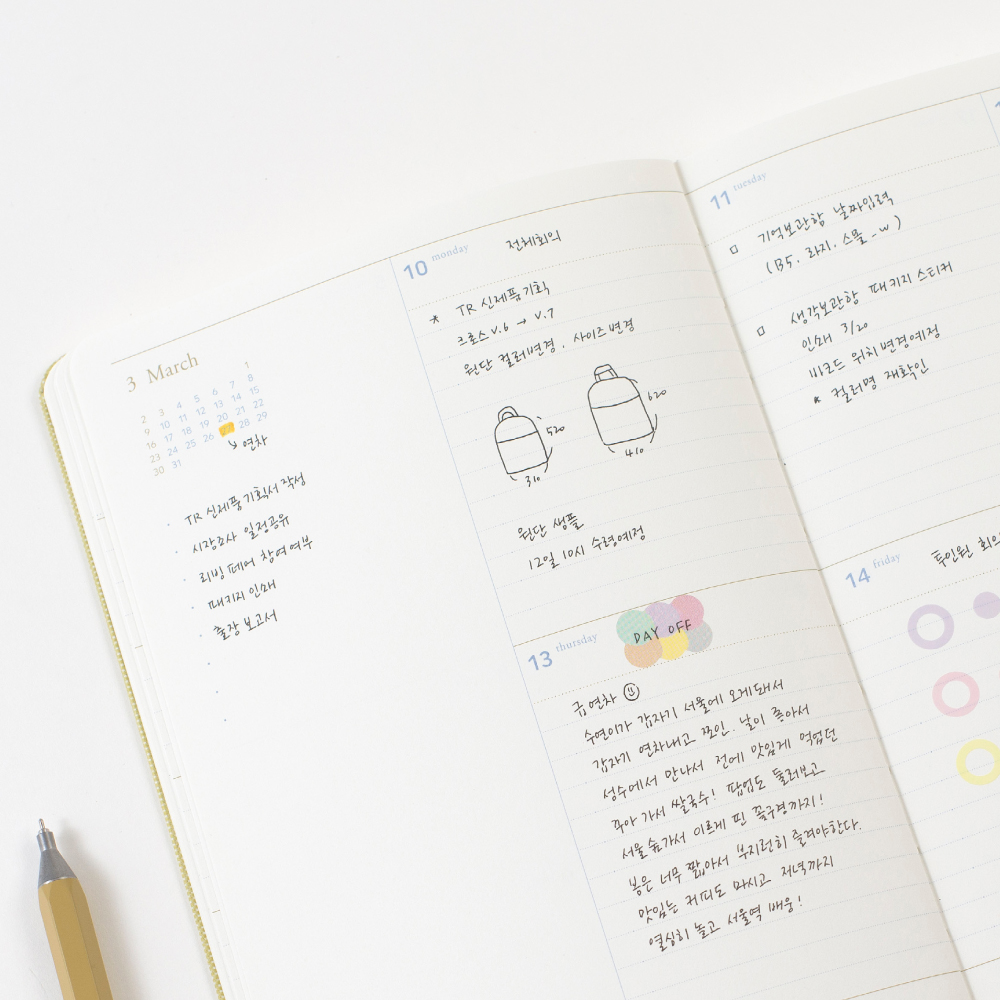 3 March
1
2 3 4 5 6 7 8
9 10 11 12 13 14 15
16 17 18 19 20 21 22
23 24 25 26 27 28 29
30 31
연차
· TR 신제품기획서 작성
· 시장조사 일정공유
· 리빙페어 참여여부
· 패키지 인쇄
· 출장 보고서
10 monday 전체회의
* TR 신제품기획
크로스 v.6 → v.7
원단 컬러변경, 사이즈변경
520
310
620
410
원단 샘플
12일 10시 수령예정
13 thursday DAY OFF
급 연차
수연이가 갑자기 서울에 오게돼서
갑자기 연차내고 쪼인. 날이 좋아서
성수에서 만나서 전에 맛있게 먹었던
꾸아 가서 쌀국수! 팝업도 둘러보고
서울숲가서 이르게 핀 꽃구경까지!
봄은 너무 짧아서 부지런히 즐겨야한다.
맛있는 커피도 마시고 저녁까지
열심히 놀고 서울역 배웅!
11 tuesday
□ 기억보관함 날짜입력
(B5, 라지, 스몰_w)
□ 생각보관함 패키지 스티커
인쇄 3/20
바코드 위치변경예정
* 컬러명 재확인
14 friday 투인원 회의